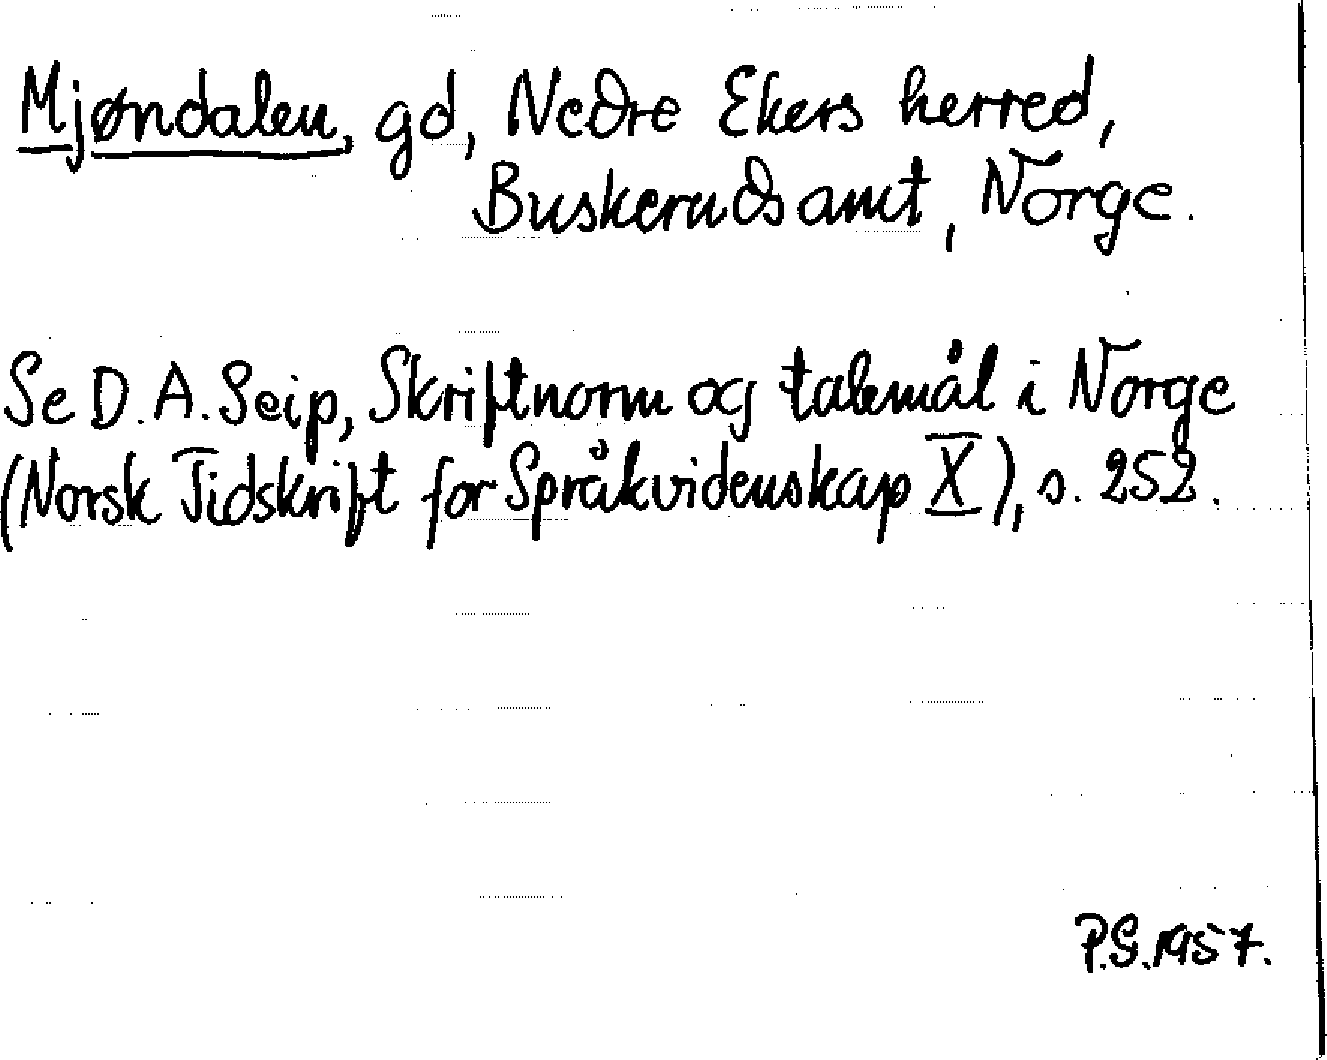 Mjøndalen, gd, Nedre Ekers herred,
Buskeruds amt, Norge.
Se D. A. Seip, Skriftnorm og talemål i Norge
(Norsk Tidskrift for Språkvidenskap X), s. 252.
P.S. 1957.